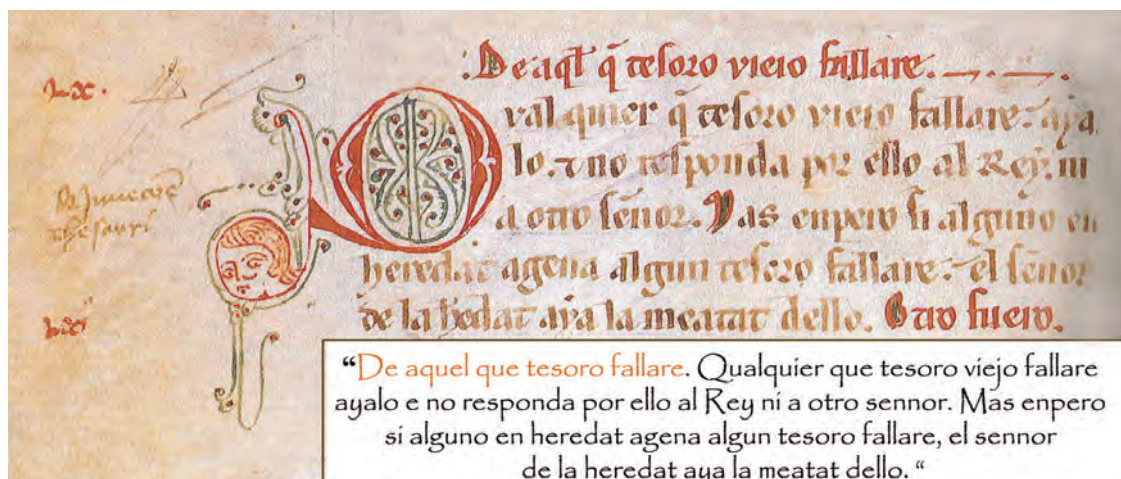 De aql̃ q̃ tesoro vieio fallare.
Qval quier q̃ tesoro vieio fallare: aya
lo. ⁊ no responda por ello al Rey. ni
a otro señor. Mas enpero si alguno en
thesauri
heredat agena algun tesoro fallare: el señor
de la h̃edat aya la meatat dello. Otro fuero.
“De aquel que tesoro fallare. Qualquier que tesoro viejo fallare
ayalo e no responda por ello al Rey ni a otro sennor. Mas enpero
si alguno en heredat agena algun tesoro fallare, el sennor
de la heredat aya la meatat dello. “